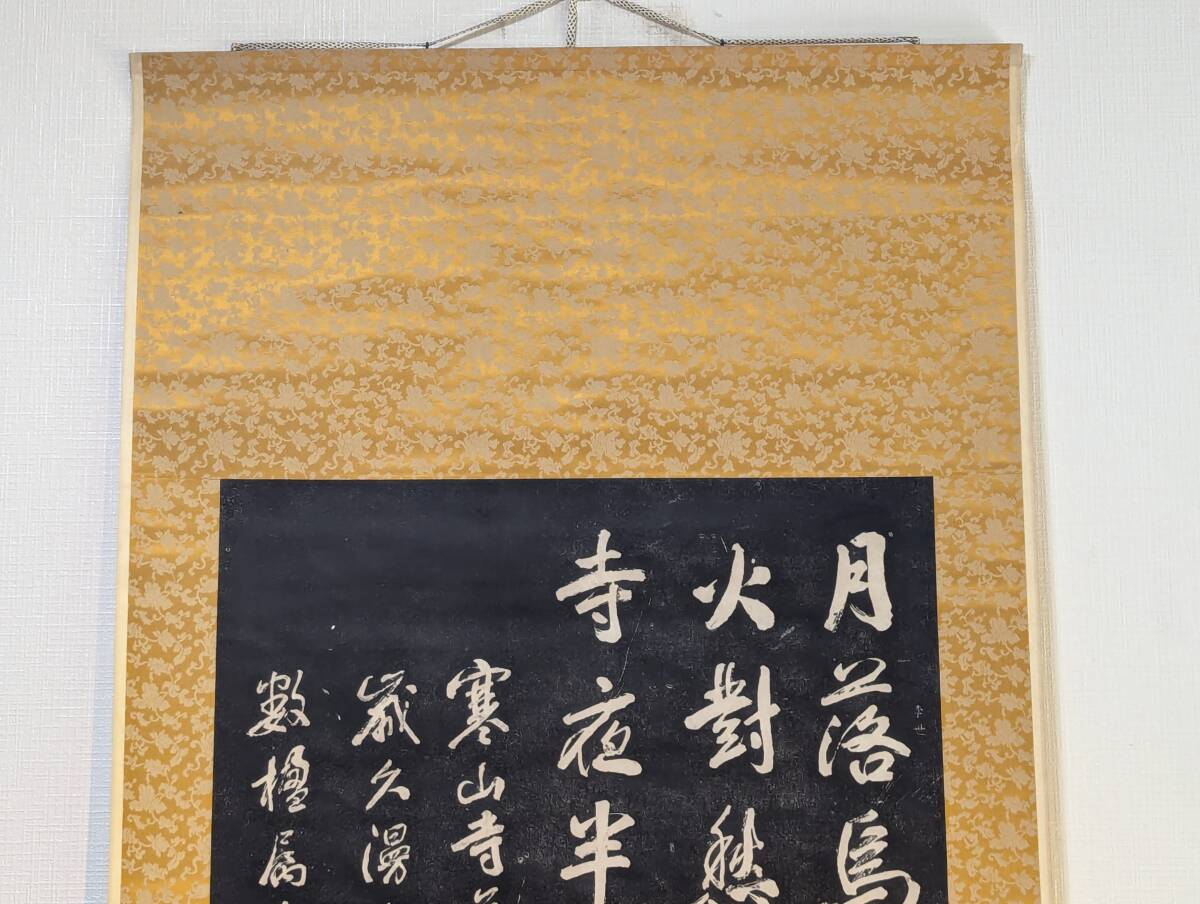 月落烏
火對愁
寺夜半
寒山寺
歲久漫
數楹属